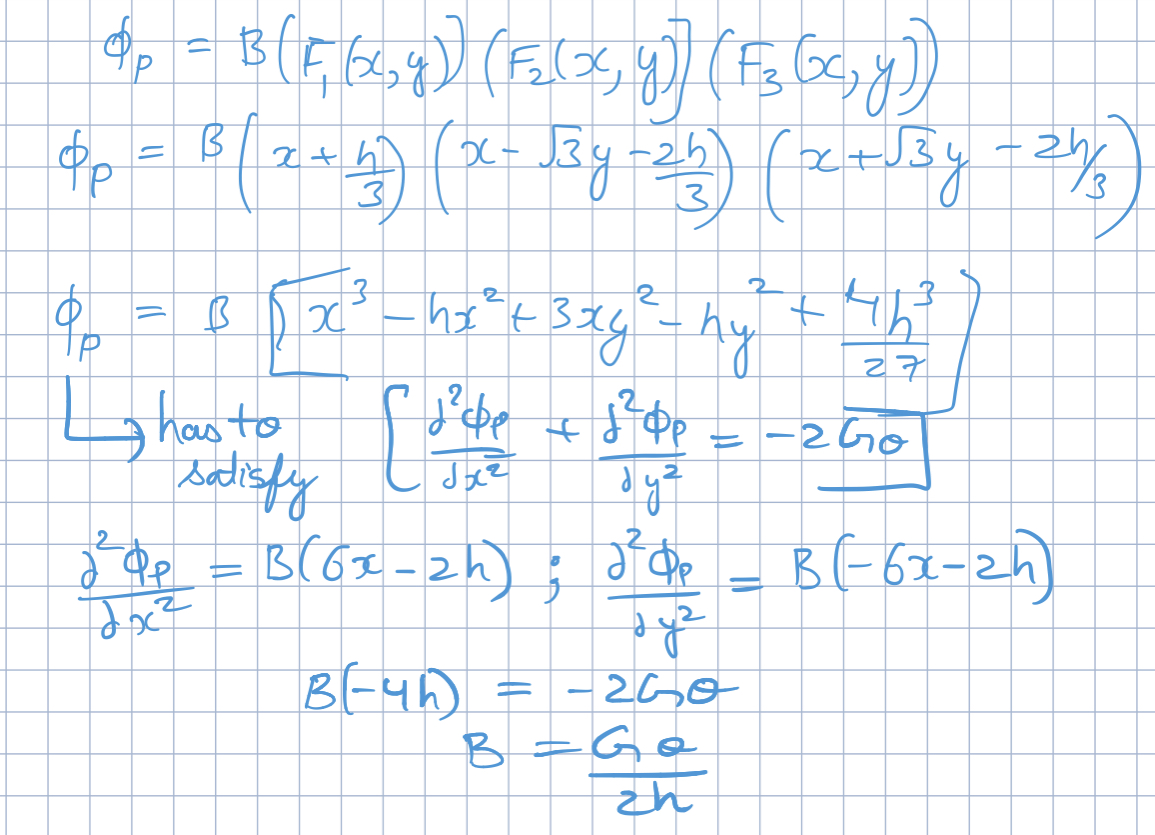 ϕ_p = B(F₁(x,y))(F₂(x,y)](F₃(x,y))
ϕ_p = B(x + h/3)(x - √3y - 2h/3)(x + √3y - 2h/3)
ϕ_p = B[x³ - hx² + 3xy² - hy² + 4h³/27]
↳ has to satisfy [∂²ϕ_p/∂x² + ∂²ϕ_p/∂y² = -2Gθ]
∂²ϕ_p/∂x² = B(6x - 2h) ; ∂²ϕ_p/∂y² = B(-6x - 2h)
B(-4h) = -2Gθ
B = Gθ/2h